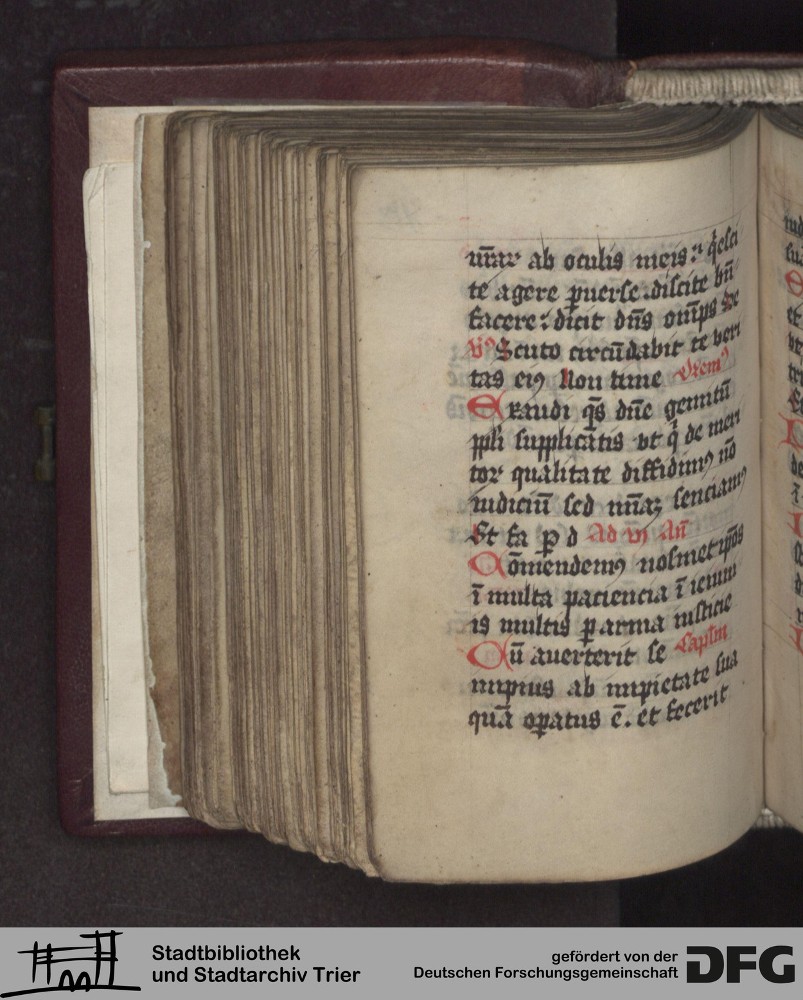 ūrar ab oculis meis: q̇esci
te agere ꝑuerse. discite bn̄
facere: dicit dn̄s om̄ps
Scuto circūdabit te veri
tas eiꝰ Non time Orem
Exaudi qs̄ dn̄e gemitū
ppl̄i supplicātis vt q̇ de meri
tor qualitate diffidimꝰ nō
iudiciū sed mīaz senciamꝰ
Et fa ꝑ d Ad vi An̄
Cōmendemꝰ nosmetip̄os
ī multa paciencia ī ieiuni
is multis ꝑ arma iusticie
Cū auerterit se Capl̄m
impius ab impietate sua
quā oꝑatus ē. et fecerit
Stadtbibliothek
und Stadtarchiv Trier
gefördert von der
Deutschen Forschungsgemeinschaft
DFG